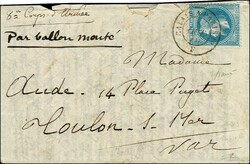 6e Corps d'Armée
Par ballon monté
Madame
Aude
14 Place Puget
Toulon s. Mer
Var